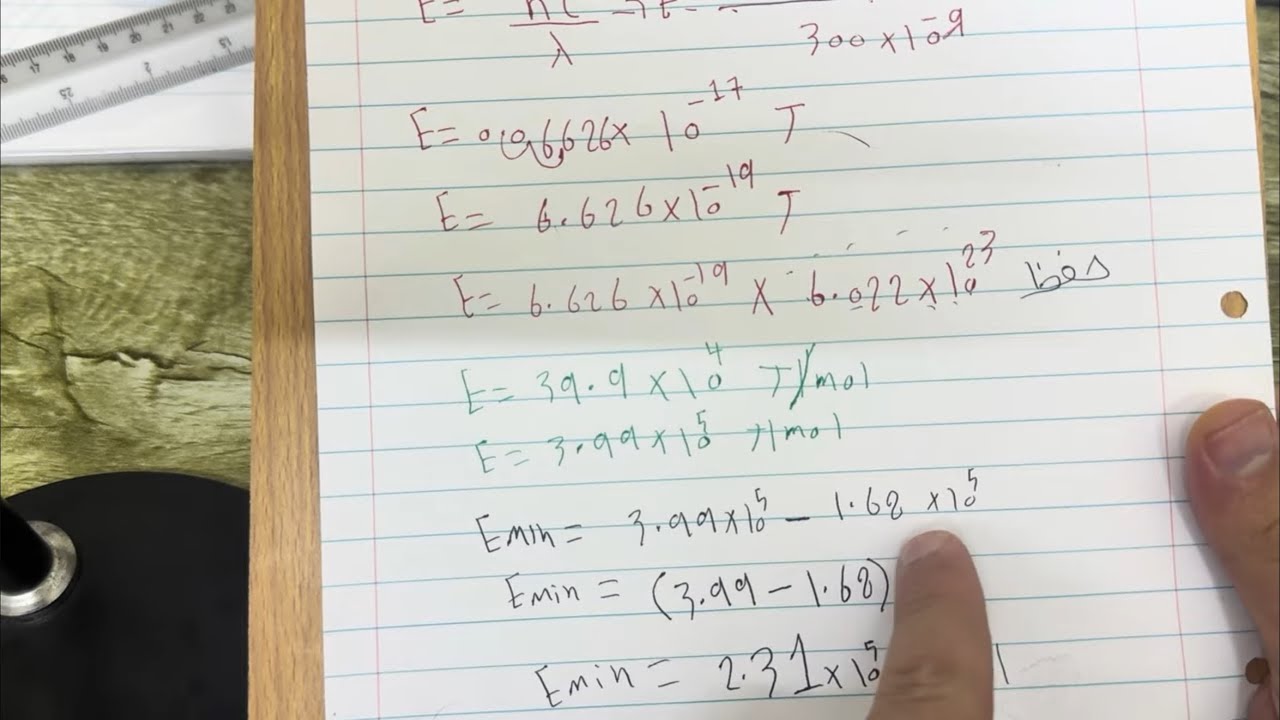 E= hc/λ → E=
300×10⁻⁹
E= 0.06,626× 10⁻¹⁷ J
E= 6.626×10⁻¹⁹ J
E= 6.626×10⁻¹⁹ × 6.022×10²³ حفظ
E= 39.9×10⁴ J/mol
E= 3.99×10⁵ J/mol
Emin= 3.99×10⁵ – 1.68 ×10⁵
Emin = (3.99 – 1.68)
Emin = 2.31×10⁵